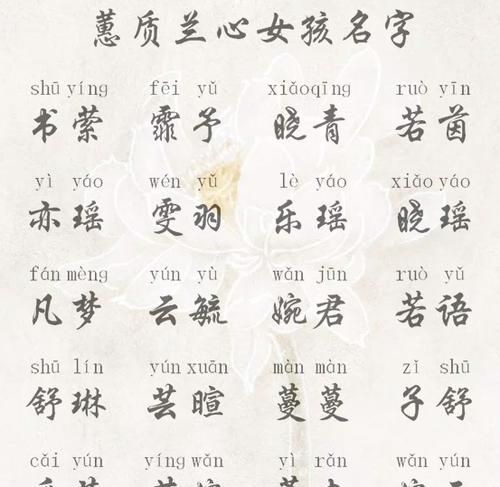 蕙质兰心女孩名字
shū yíng fēi yǔ xiǎoqīng ruò yīn
书萦 霏予 晓青 若茵
yì yáo wén yǔ lè yáo xiǎo yáo
亦瑶 雯羽 乐瑶 晓瑶
fán mèng yún yù wǎn jūn ruò yǔ
凡梦 云毓 婉君 若语
shū lín yún xuān màn màn zǐ shū
舒琳 芸暄 蔓蔓 子舒
cǎi yún yíng wǎn yì rǎn wǎn yún